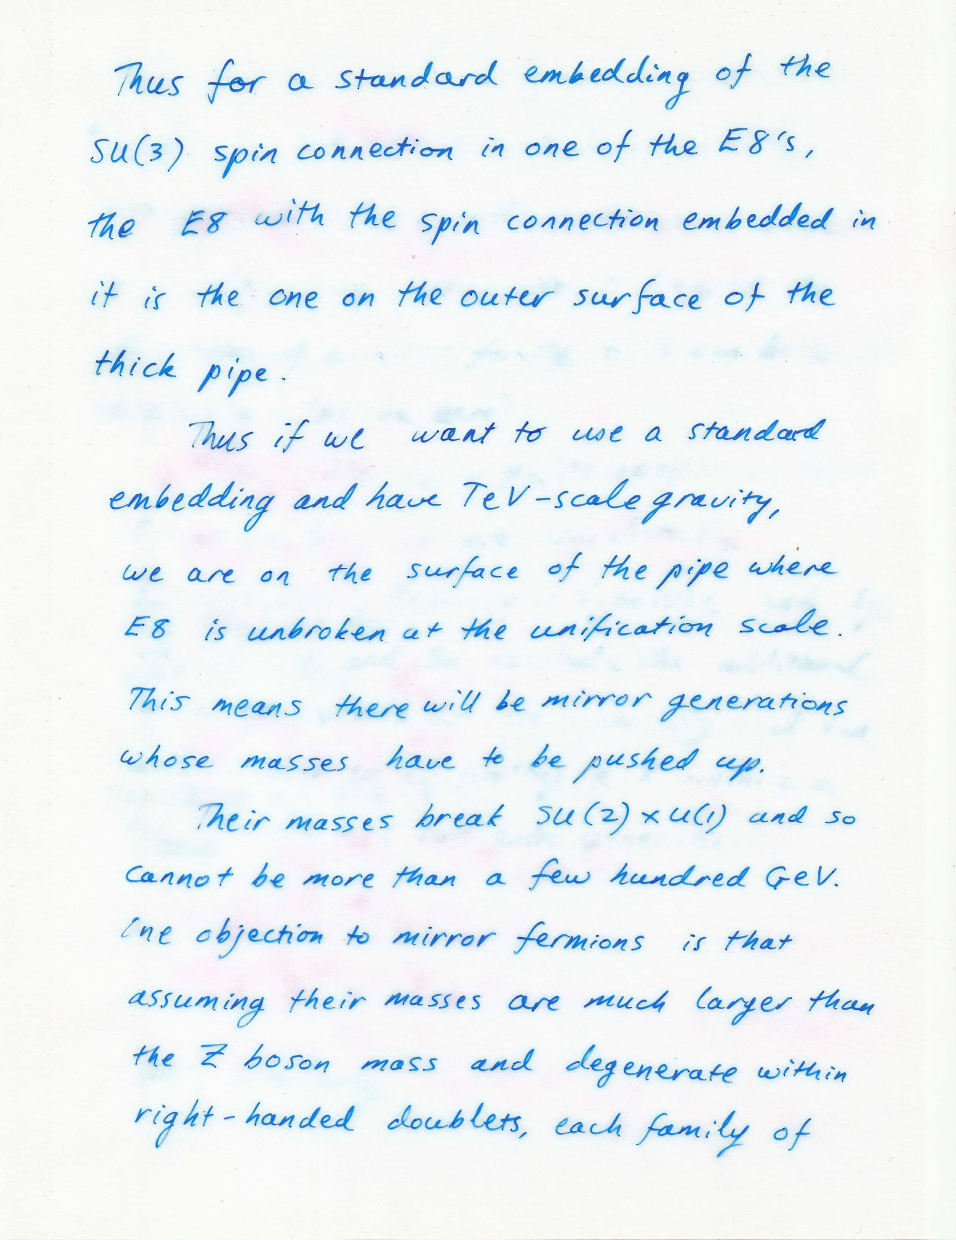 Thus for a standard embedding of the
SU(3) spin connection in one of the E8's,
the E8 with the spin connection embedded in
it is the one on the outer surface of the
thick pipe.
Thus if we want to use a standard
embedding and have TeV-scale gravity,
we are on the surface of the pipe where
E8 is unbroken at the unification scale.
This means there will be mirror generations
whose masses have to be pushed up.
Their masses break SU(2) x U(1) and so
cannot be more than a few hundred GeV.
One objection to mirror fermions is that
assuming their masses are much larger than
the Z boson mass and degenerate within
right-handed doublets, each family of